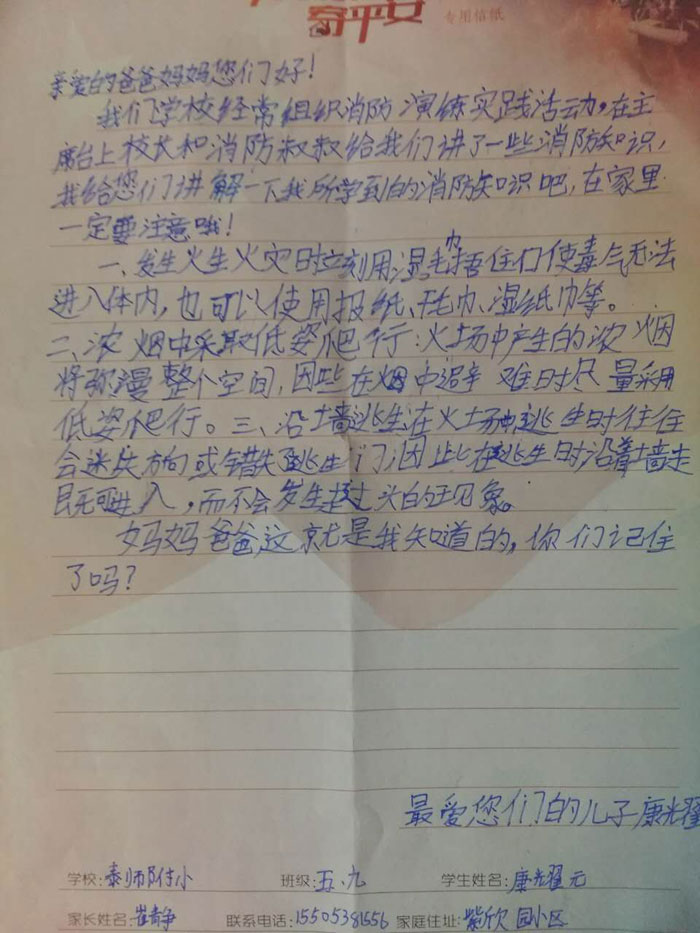 寄平安
专用信纸
亲爱的爸爸妈妈您们好！
我们学校经常组织消防演练实践活动，在主
席台上校长和消防叔叔给我们讲了一些消防知识，
我给您们讲解一下我所学到的消防知识吧，在家里
一定要注意哦！
一、发生火生火灾时立刻用湿毛巾捂住们使毒气无法
进入体内，也可以使用报纸、毛巾、湿纸巾等。
二、浓烟中采取低姿爬行：火场中产生的浓烟
将弥漫整个空间，因些在烟中避难时尽量采用
低姿爬行。三、沿墙逃生在火场中逃生时往往
会迷失方向或错失逃生门，因此在逃生时沿着墙走
，而不会发生过头的现象。
妈妈爸爸，这就是我知道的，你们记住
了吗？
最爱您们的儿子康光耀
学校：泰师附小 班级：五.九 学生姓名：康光耀元
家长姓名：崔静 联系电话：15505381556 家庭住址：紫欣园小区